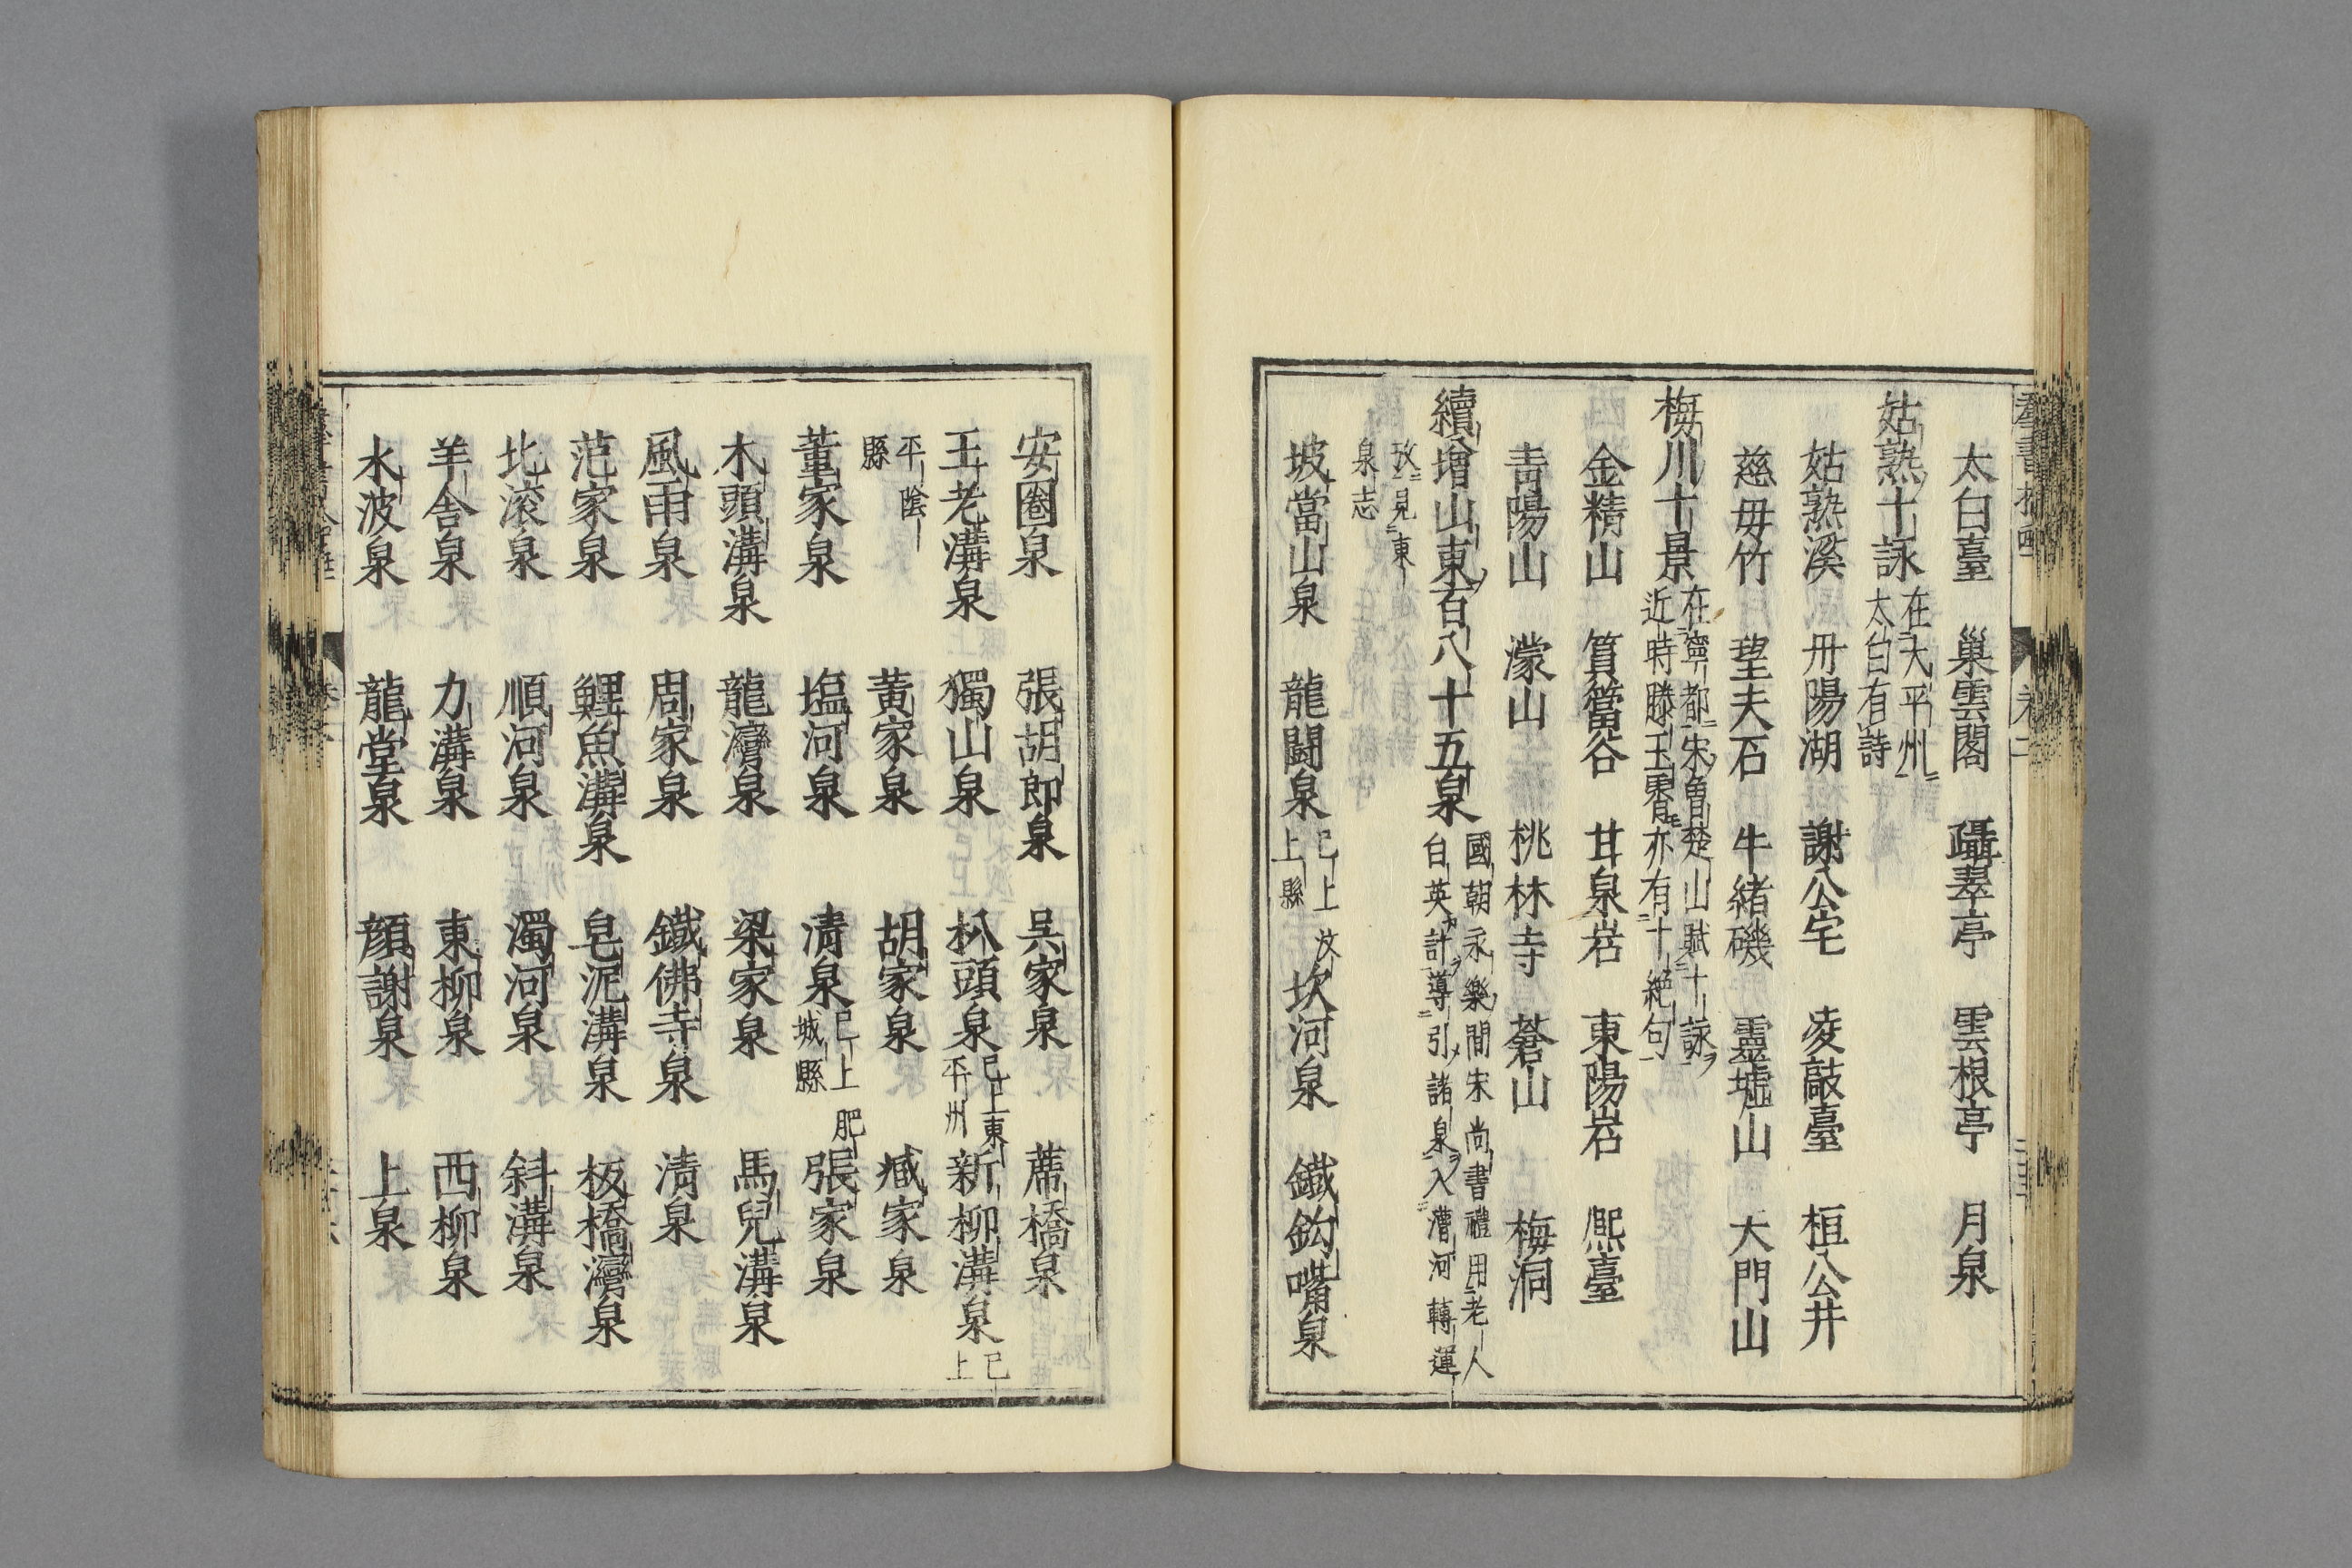 太白臺 巢雲閣 躡翠亭 雲根亭 月泉
姑熟十詠 在大平州 太白有詩
姑熟溪 丹陽湖 謝公宅 凌敲臺 桓公井
慈母竹 望夫石 牛緒磯 靈墟山 大門山
梅川十景 在寧都宋曾楚山賦十詠 近時滕玉霄亦有十絕句
金精山 篔簹谷 甘泉岩 東陽岩 熈臺
青陽山 濛山 桃林寺 蒼山 梅洞
續增山東百八十五泉 國朝永樂間宋尚書禮用老人 白英計導引諸泉入漕河轉運
攷見東 泉志
坡當山泉 龍鬪泉 已上汶 上縣 坎河泉 鐵鈎嘴泉
安圈泉 張胡郎泉 吳家泉 蓆橋泉
王老溝泉 獨山泉 扒頭泉 已上東 平州 新柳溝泉 已 上
平陰 縣 黃家泉 胡家泉 臧家泉
董家泉 塩河泉 清泉 已上肥 城縣 張家泉
木頭溝泉 龍灣泉 梁家泉 馬兒溝泉
風雨泉 周家泉 鐵佛寺泉 清泉
范家泉 鯉魚溝泉 皂泥溝泉 板橋灣泉
北滚泉 順河泉 濁河泉 斜溝泉
羊舍泉 力溝泉 東柳泉 西柳泉
水波泉 龍堂泉 顏謝泉 上泉